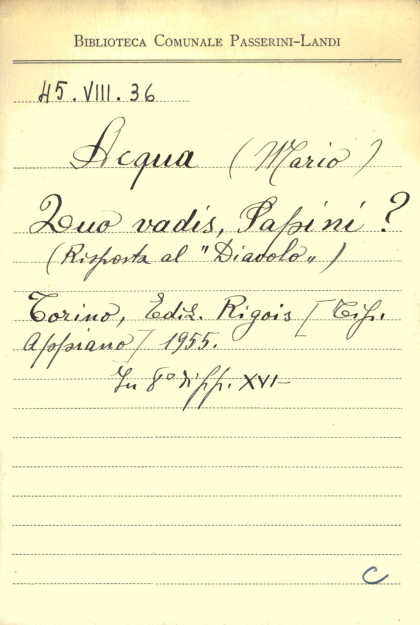 BIBLIOTECA COMUNALE PASSERINI-LANDI
45.VIII.36
Acqua (Mario)
Quo vadis, Papini?
(Risposta al "Diavolo")
Torino, Ediz. Rigois [Tip.
Appiano] 1955.
In 8° di pp. XVI-
C